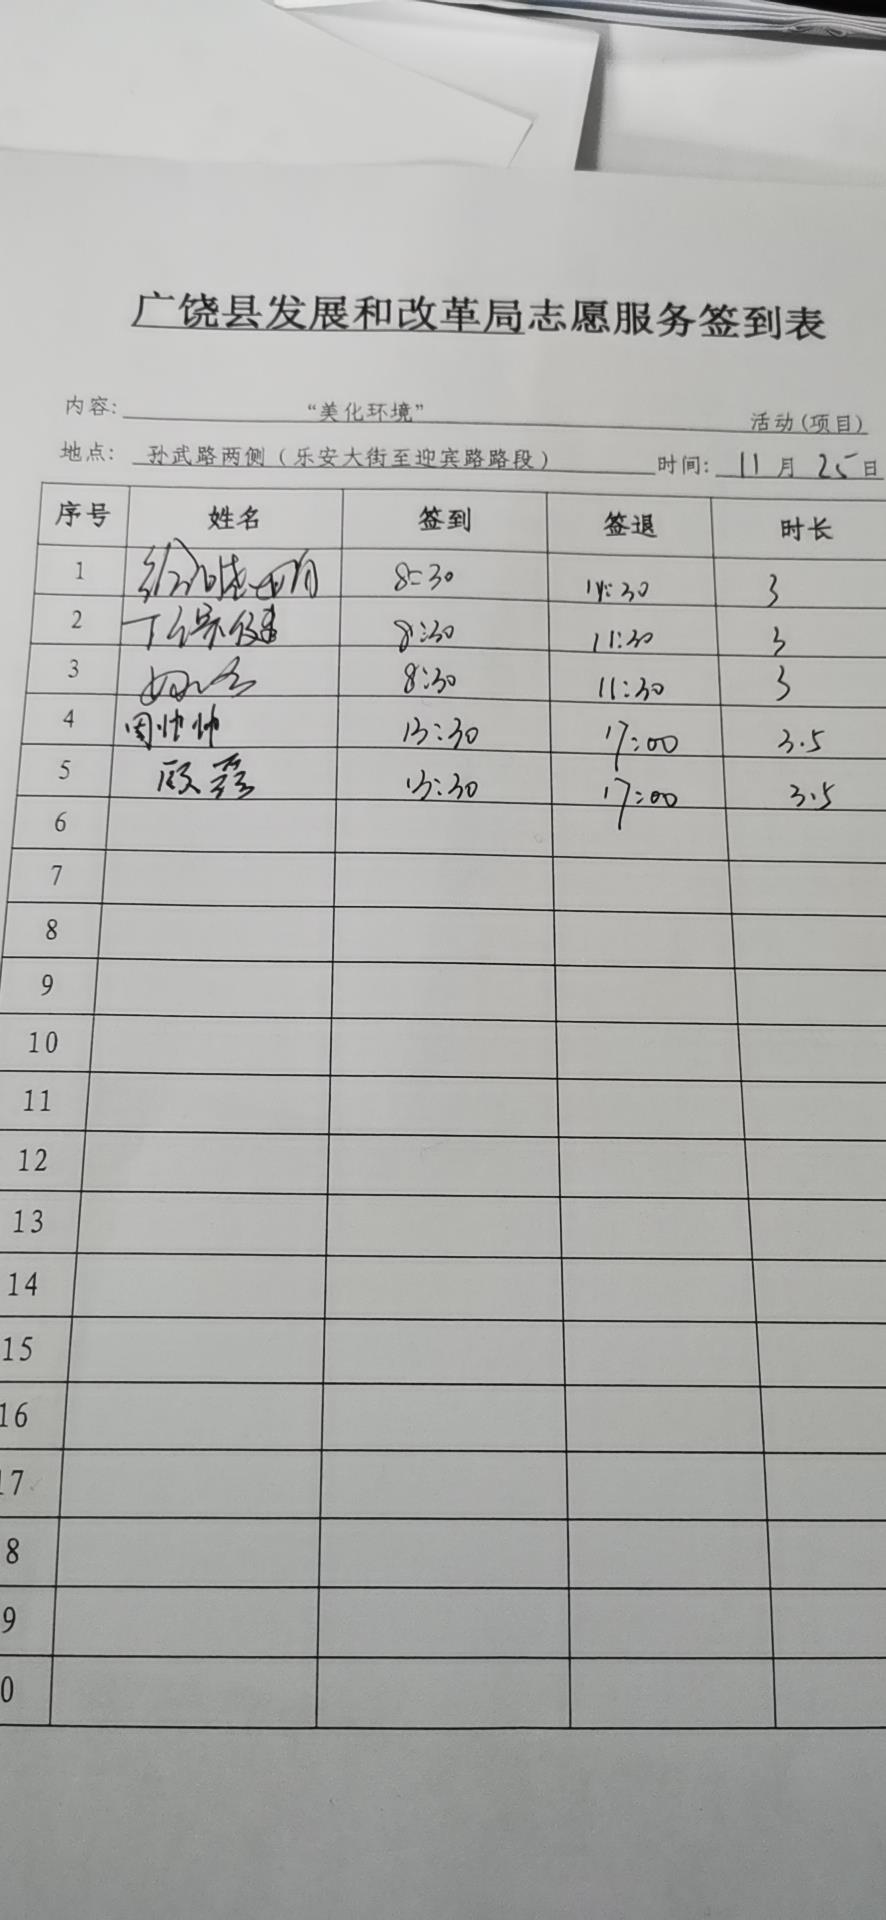 广饶县发展和改革局志愿服务签到表
内容: “美化环境” 活动(项目)
地点: 孙武路两侧(乐安大街至迎宾路路段) 时间: 11月25日
序号 姓名 签到 签退 时长
1 8:30 3
2 8:30 11:30 3
3 8:30 11:30 3
4 周帅帅 13:30 17:00 3.5
5 顾霞 13:30 17:00 3.5
6
7
8
9
10
11
12
13
14
15
16
17
8
9
0